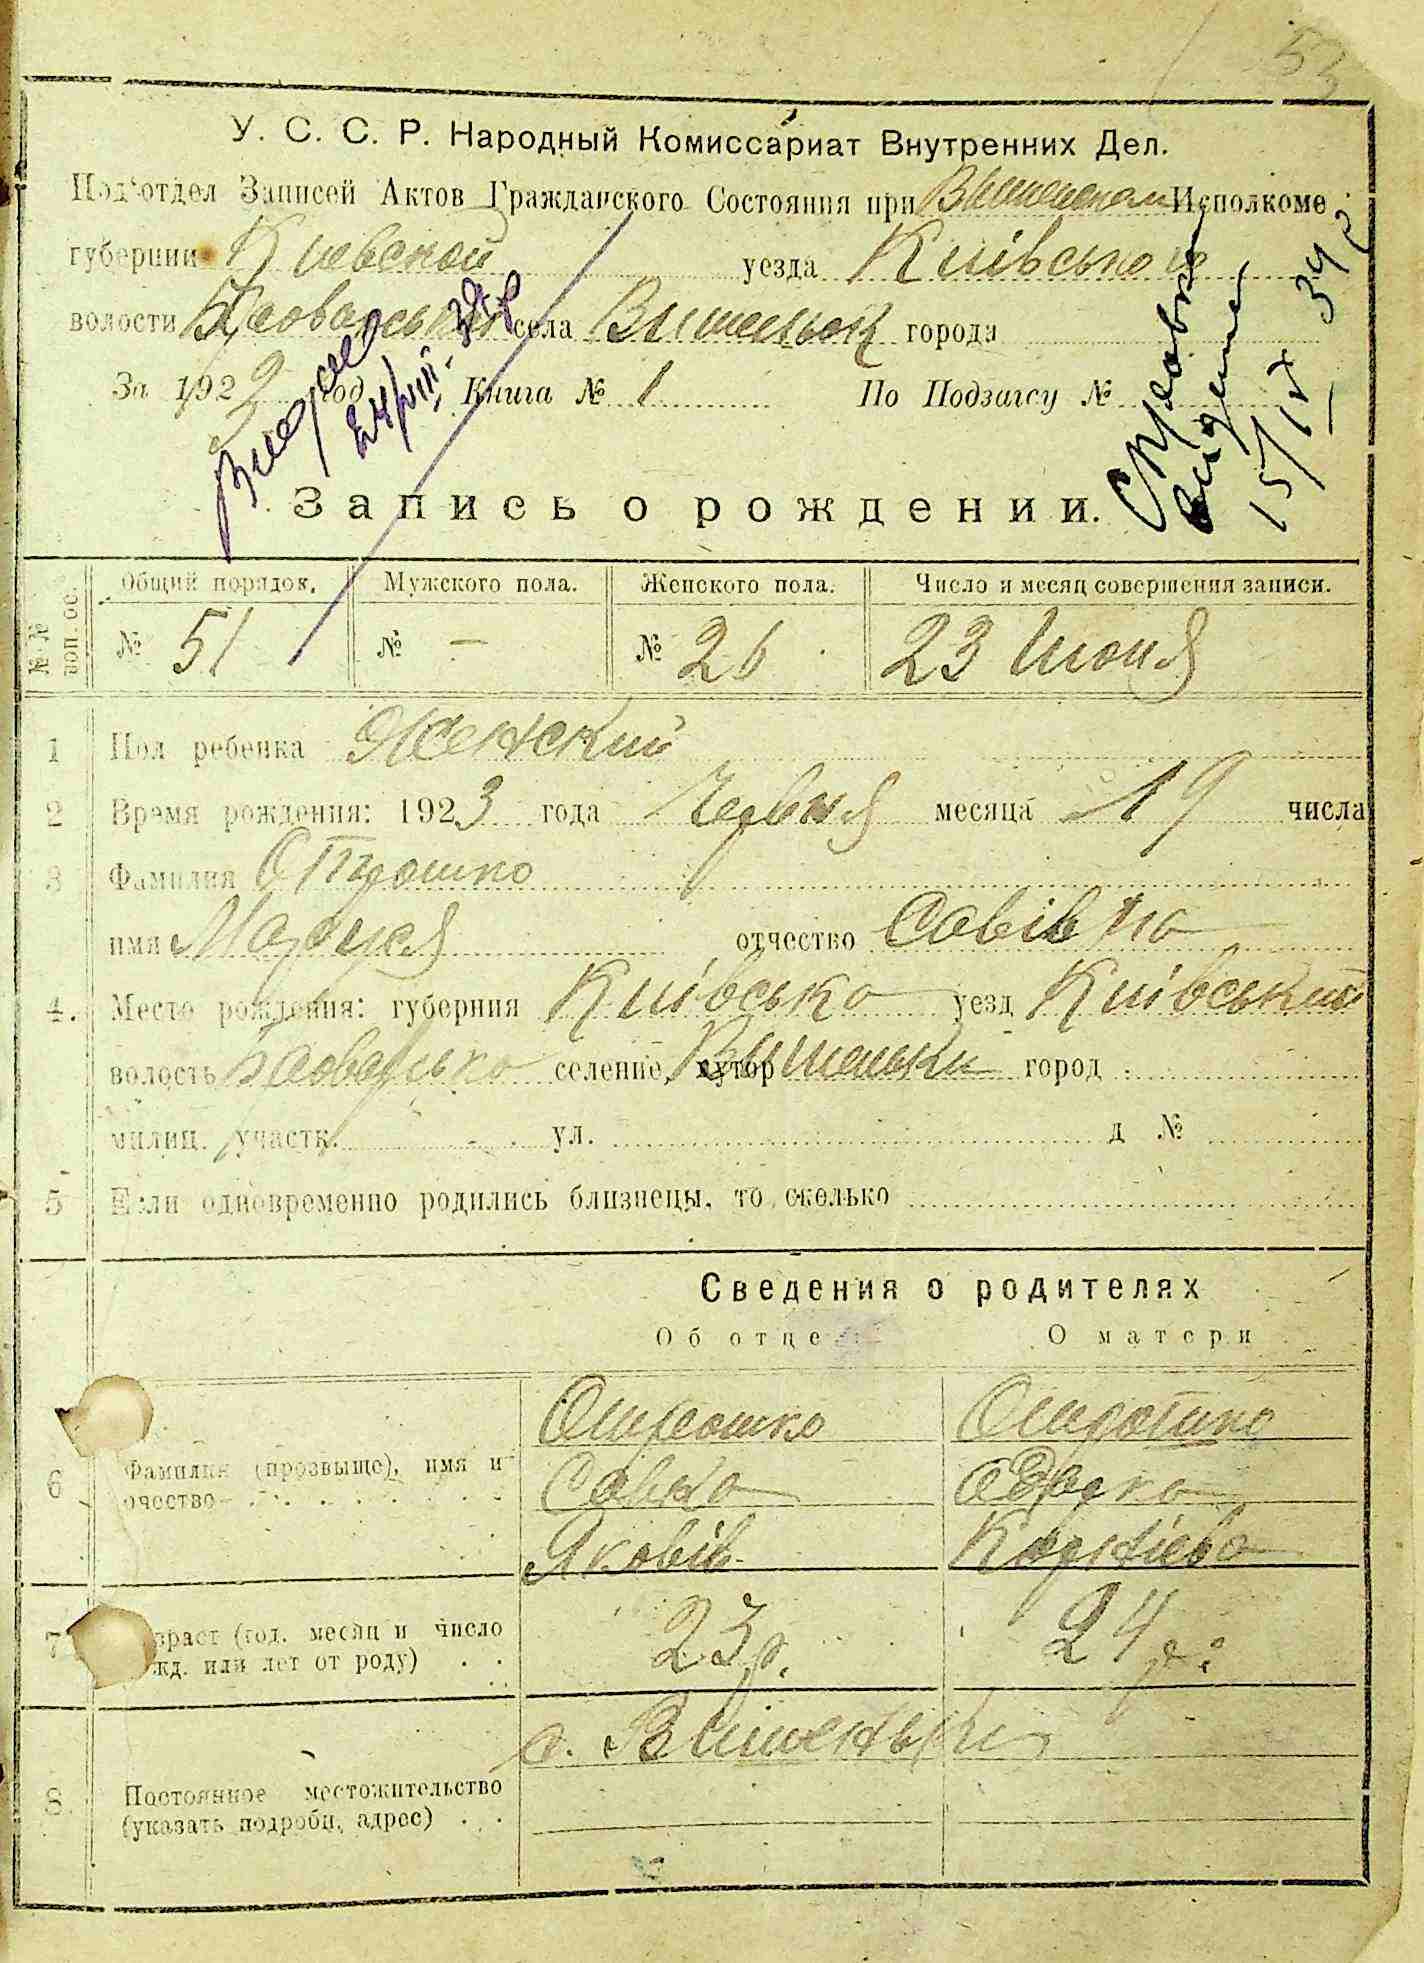 53
У. С. С. Р. Народный Комиссариат Внутренних Дел.
Под'отдел Записей Актов Гражданского Состояния при Исполкоме
губернии Киевской уезда Київського
волости села города
За 192 год Книга № 1 По Подзагсу №
24/VIII
Справка
видана
15/IX 34 р
Запись о рождении.
№ № воп. ос. Общий порядок. Мужского пола. Женского пола. Число и месяц совершения записи.
№ 51 № — № 26 23 Июня
1 Пол ребенка Женский
2 Время рождения: 1923 года Червня месяца 19 числа
3 Фамилия
имя Маруся отчество Савівна
4. Место рождения: губерния Київська уезд Київський
волость селение, хутор Вишеньки город
милиц. участк. ул. д №
5 Если одновременно родились близнецы, то сколько
Сведения о родителях
Об отце О матери
6 Фамилия (прозвыще), имя и
очество
Савка
Яковів Корнієва
7 зраст (год. месяц и число 23 р. 24 р.
жд. или лет от роду)
с. Вишеньки
8. Постоянное местожительство
(указать подробн. адрес)